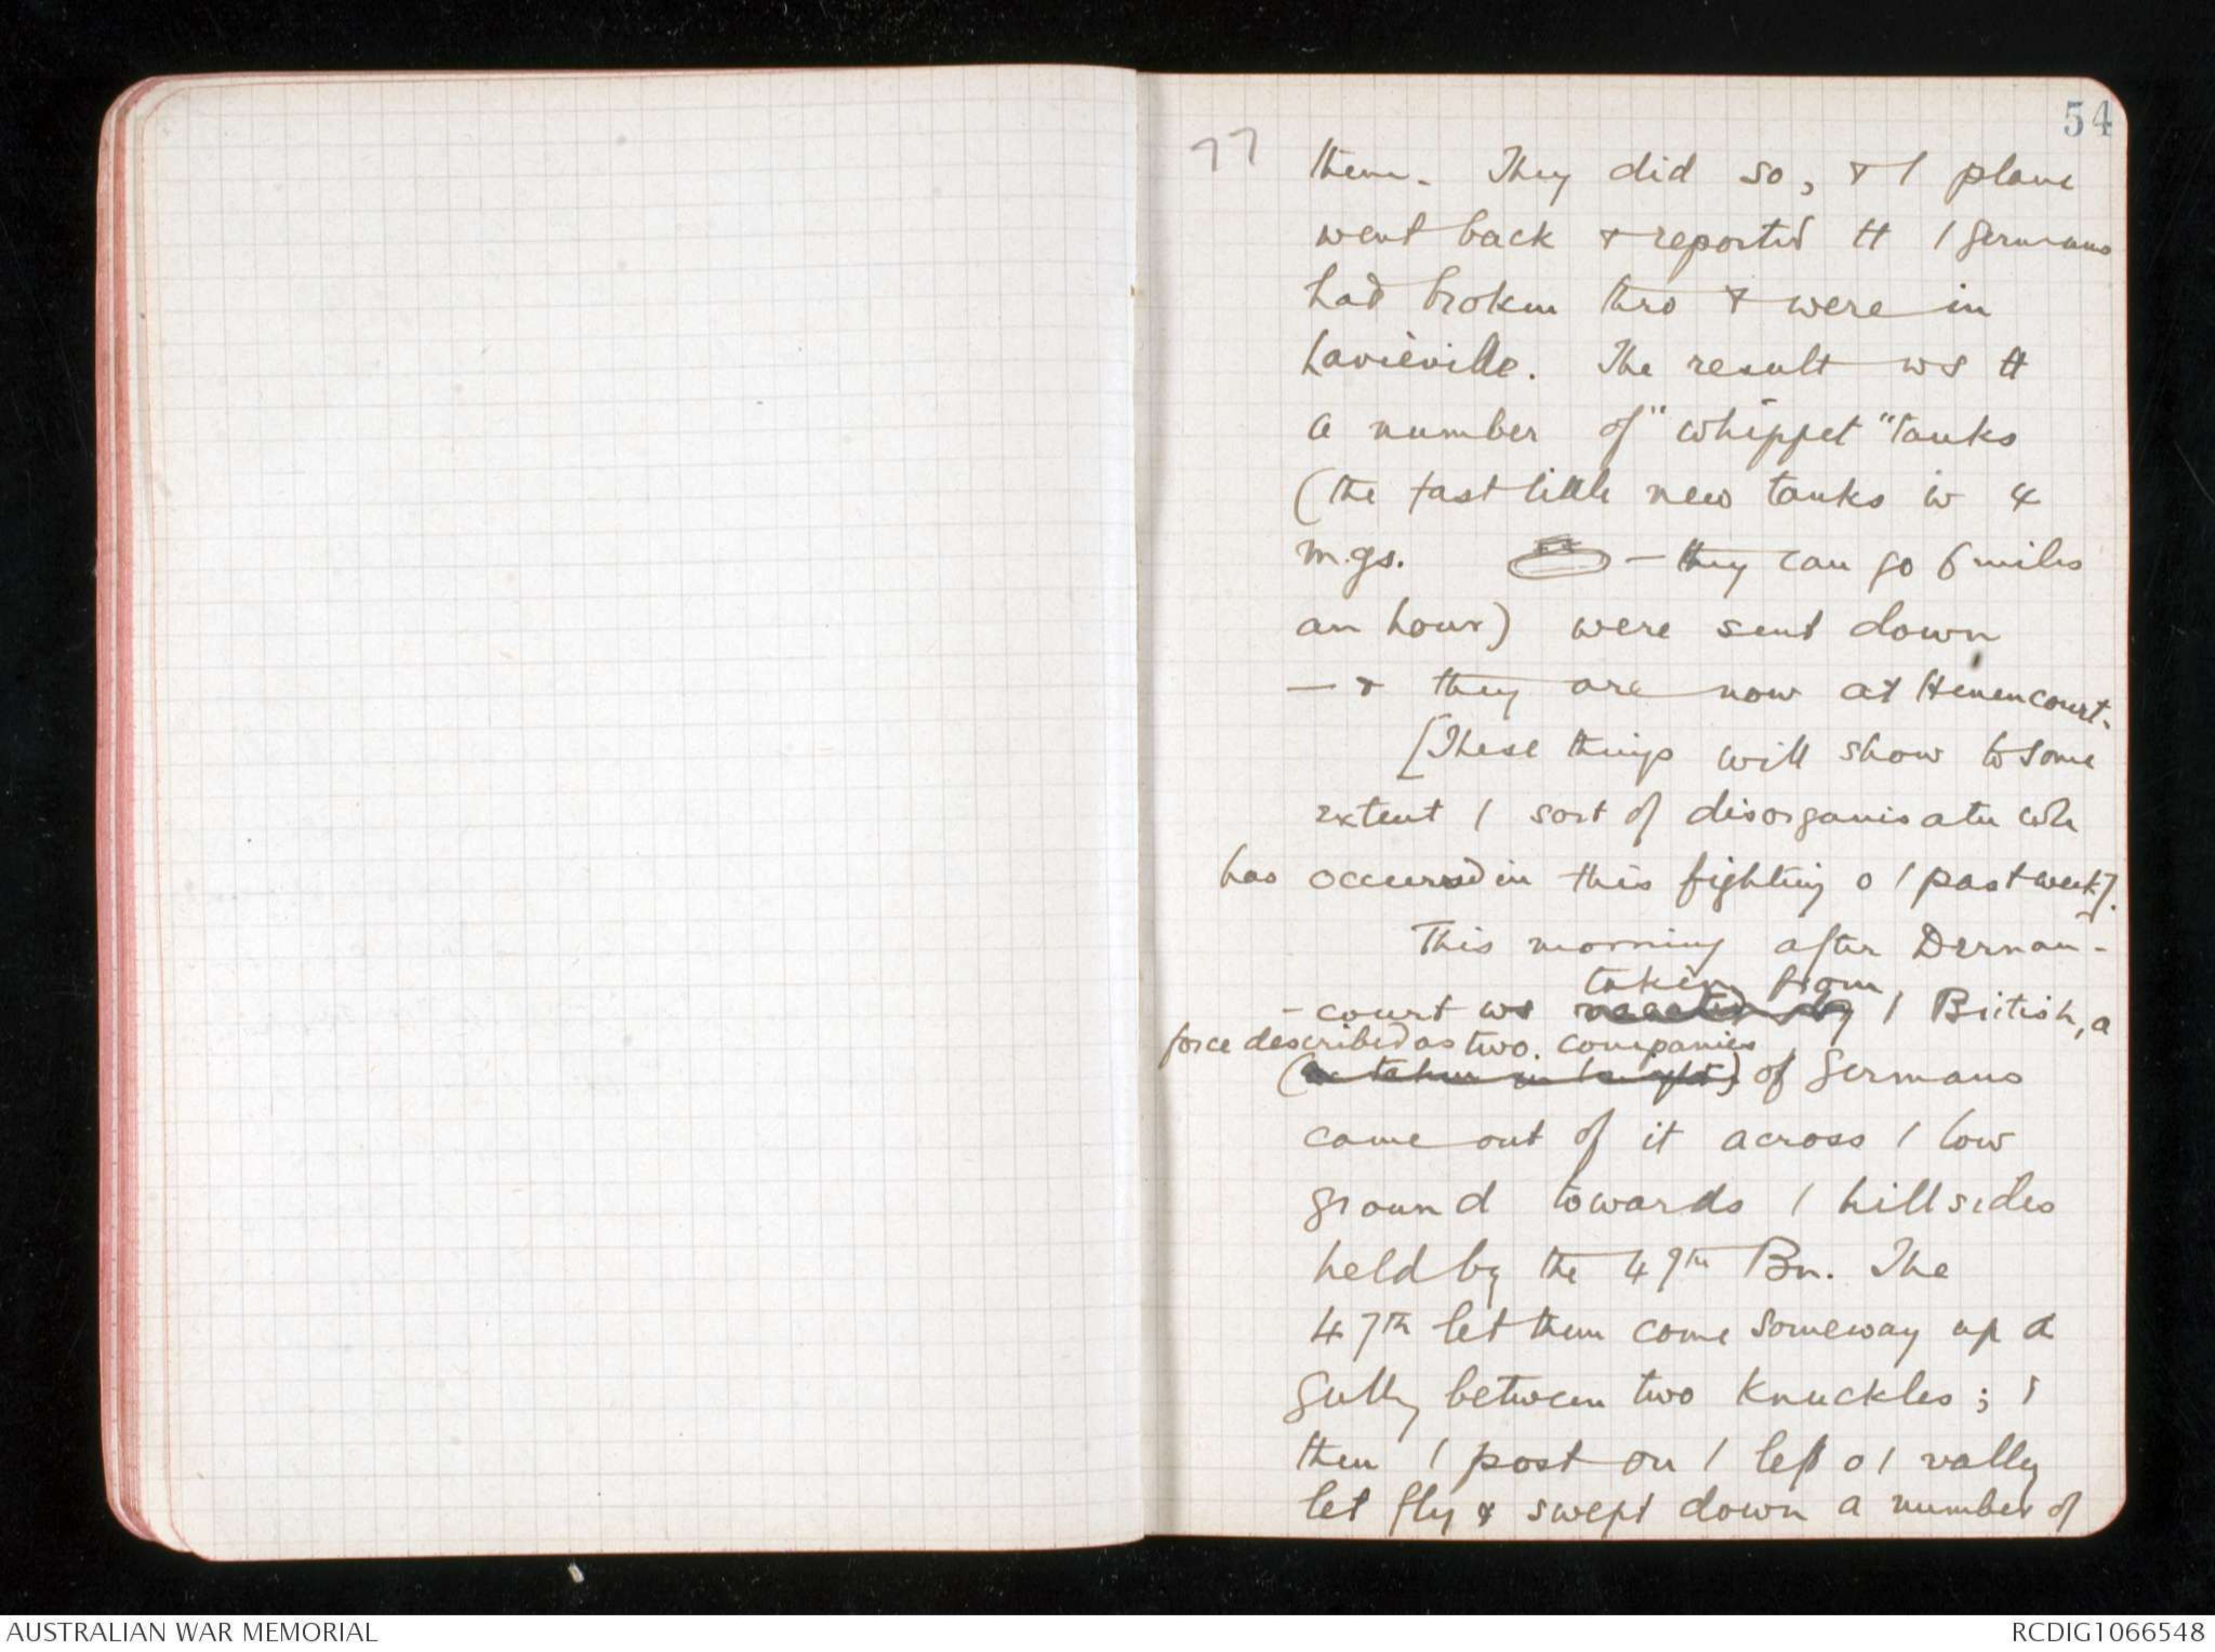 54
77
them. They did so, & / plane
went back & reported tt / Germans
had broken thro & were in
Lavieville. The result ws tt
a number of "whippet" tanks
(the fast little new tanks w 4
m.gs. — they can go 6 miles
an hour) were sent down
— & they are now at Henencourt.
[These things will show to some
extent / sort of disorganisatn wh
has occurred in this fighting o / past week].
This morning after Dernan-
taken from
-court ws / British, a
force described as two companies
of Germans
came out of it across / low
ground towards / hillsides
held by the 47th Bn. The
47th let them come someway up a
gully between two knuckles;
then / post on / left o / valley
let fly & swept down a number of
AUSTRALIAN WAR MEMORIAL
RCDIG1066548